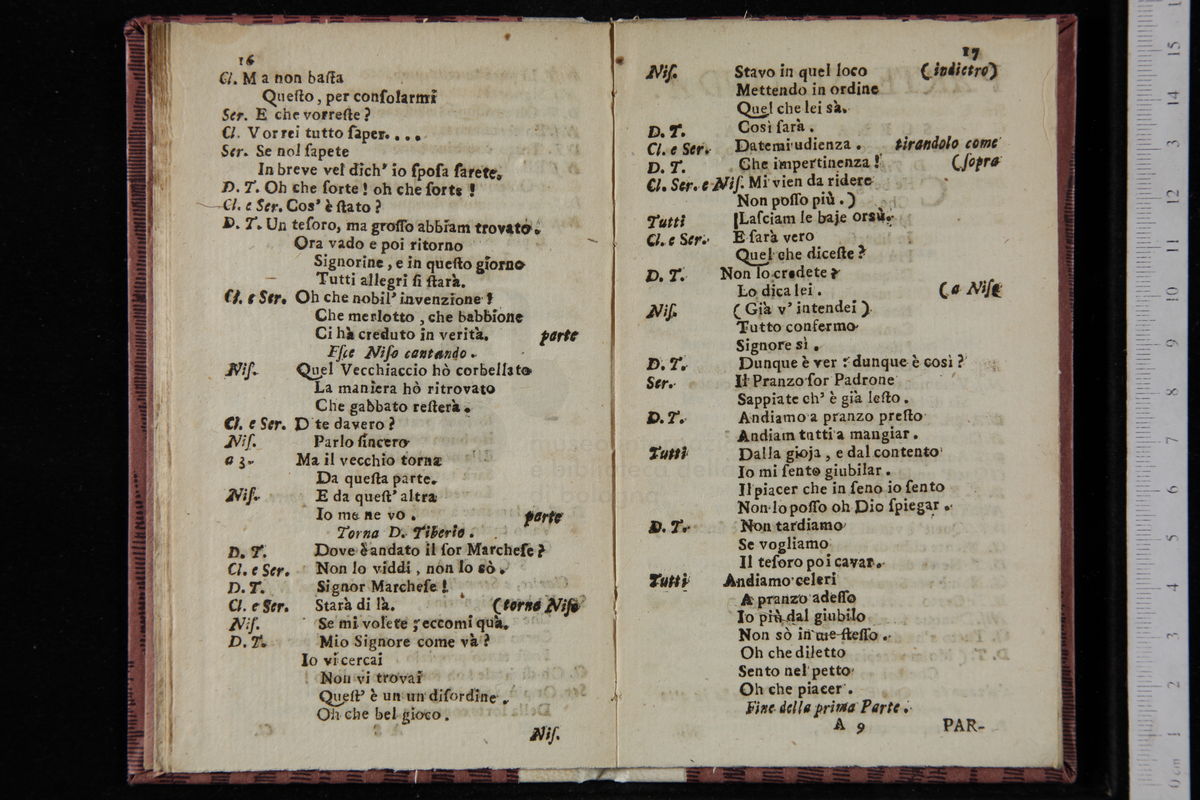 16
Cl. Ma non baſta
Queſto, per conſolarmi
Ser. E che vorreſte?
Cl. Vorrei tutto ſaper....
Ser. Se nol ſapete
In breve vel dich' io ſpoſa ſarete.
D. T. Oh che ſorte! oh che ſorte!
Cl. e Ser. Cos' è ſtato?
D. T. Un teſoro, ma groſſo abbiam trovato.
Ora vado e poi ritorno
Signorine, e in queſto giorno
Tutti allegri ſi ſtarà.
Cl. e Ser. Oh che nobil' invenzione!
Che merlotto, che babbione
Ci hà creduto in verità. parte
Eſce Niſo cantando.
Niſ. Quel Vecchiaccio hò corbellato
La maniera hò ritrovato
Che gabbato reſterà.
Cl. e Ser. D te davero?
Niſ. Parlo ſincero
a 3. Ma il vecchio torna
Da queſta parte.
Niſ. E da queſt' altra
Io me ne vo. parte
Torna D. Tiberio.
D. T. Dove è andato il ſor Marcheſe?
Cl. e Ser. Non lo viddi, non lo sò.
D. T. Signor Marcheſe!
Cl. e Ser. Starà di là. (torna Niſo
Niſ. Se mi volete, eccomi quà.
D. T. Mio Signore come và?
Io vi cercai
Non vi trovai
Queſt' è un un diſordine.
Oh che bel gioco.
Niſ.
17
Niſ. Stavo in quel loco (indietro)
Mettendo in ordine
Quel che lei sà.
D. T. Così ſarà.
Cl. e Ser. Datemi udienza. tirandolo come
D. T. Che impertinenza! (ſopra
Cl. Ser. e Niſ. Mi vien da ridere
Non poſſo più.)
Tutti Laſciam le baje orsù.
Cl. e Ser. E ſarà vero
Quel che diceſte?
D. T. Non lo credete?
Lo dica lei. (a Niſo
Niſ. (Già v' intendei)
Tutto confermo
Signore sì.
D. T. Dunque è ver: dunque è così?
Ser. Il Pranzo ſor Padrone
Sappiate ch' è già leſto.
D. T. Andiamo a pranzo preſto
Andiam tutti a mangiar.
Tutti Dalla gioja, e dal contento
Io mi ſento giubilar.
Il piacer che in ſeno io ſento
Non lo poſſo oh Dio ſpiegar.
D. T. Non tardiamo
Se vogliamo
Il teſoro poi cavar.
Tutti Andiamo celeri
A pranzo adeſſo
Io più dal giubilo
Non sò in me ſteſſo.
Oh che diletto
Sento nel petto
Oh che piacer.
Fine della prima Parte.
A 9 PAR-